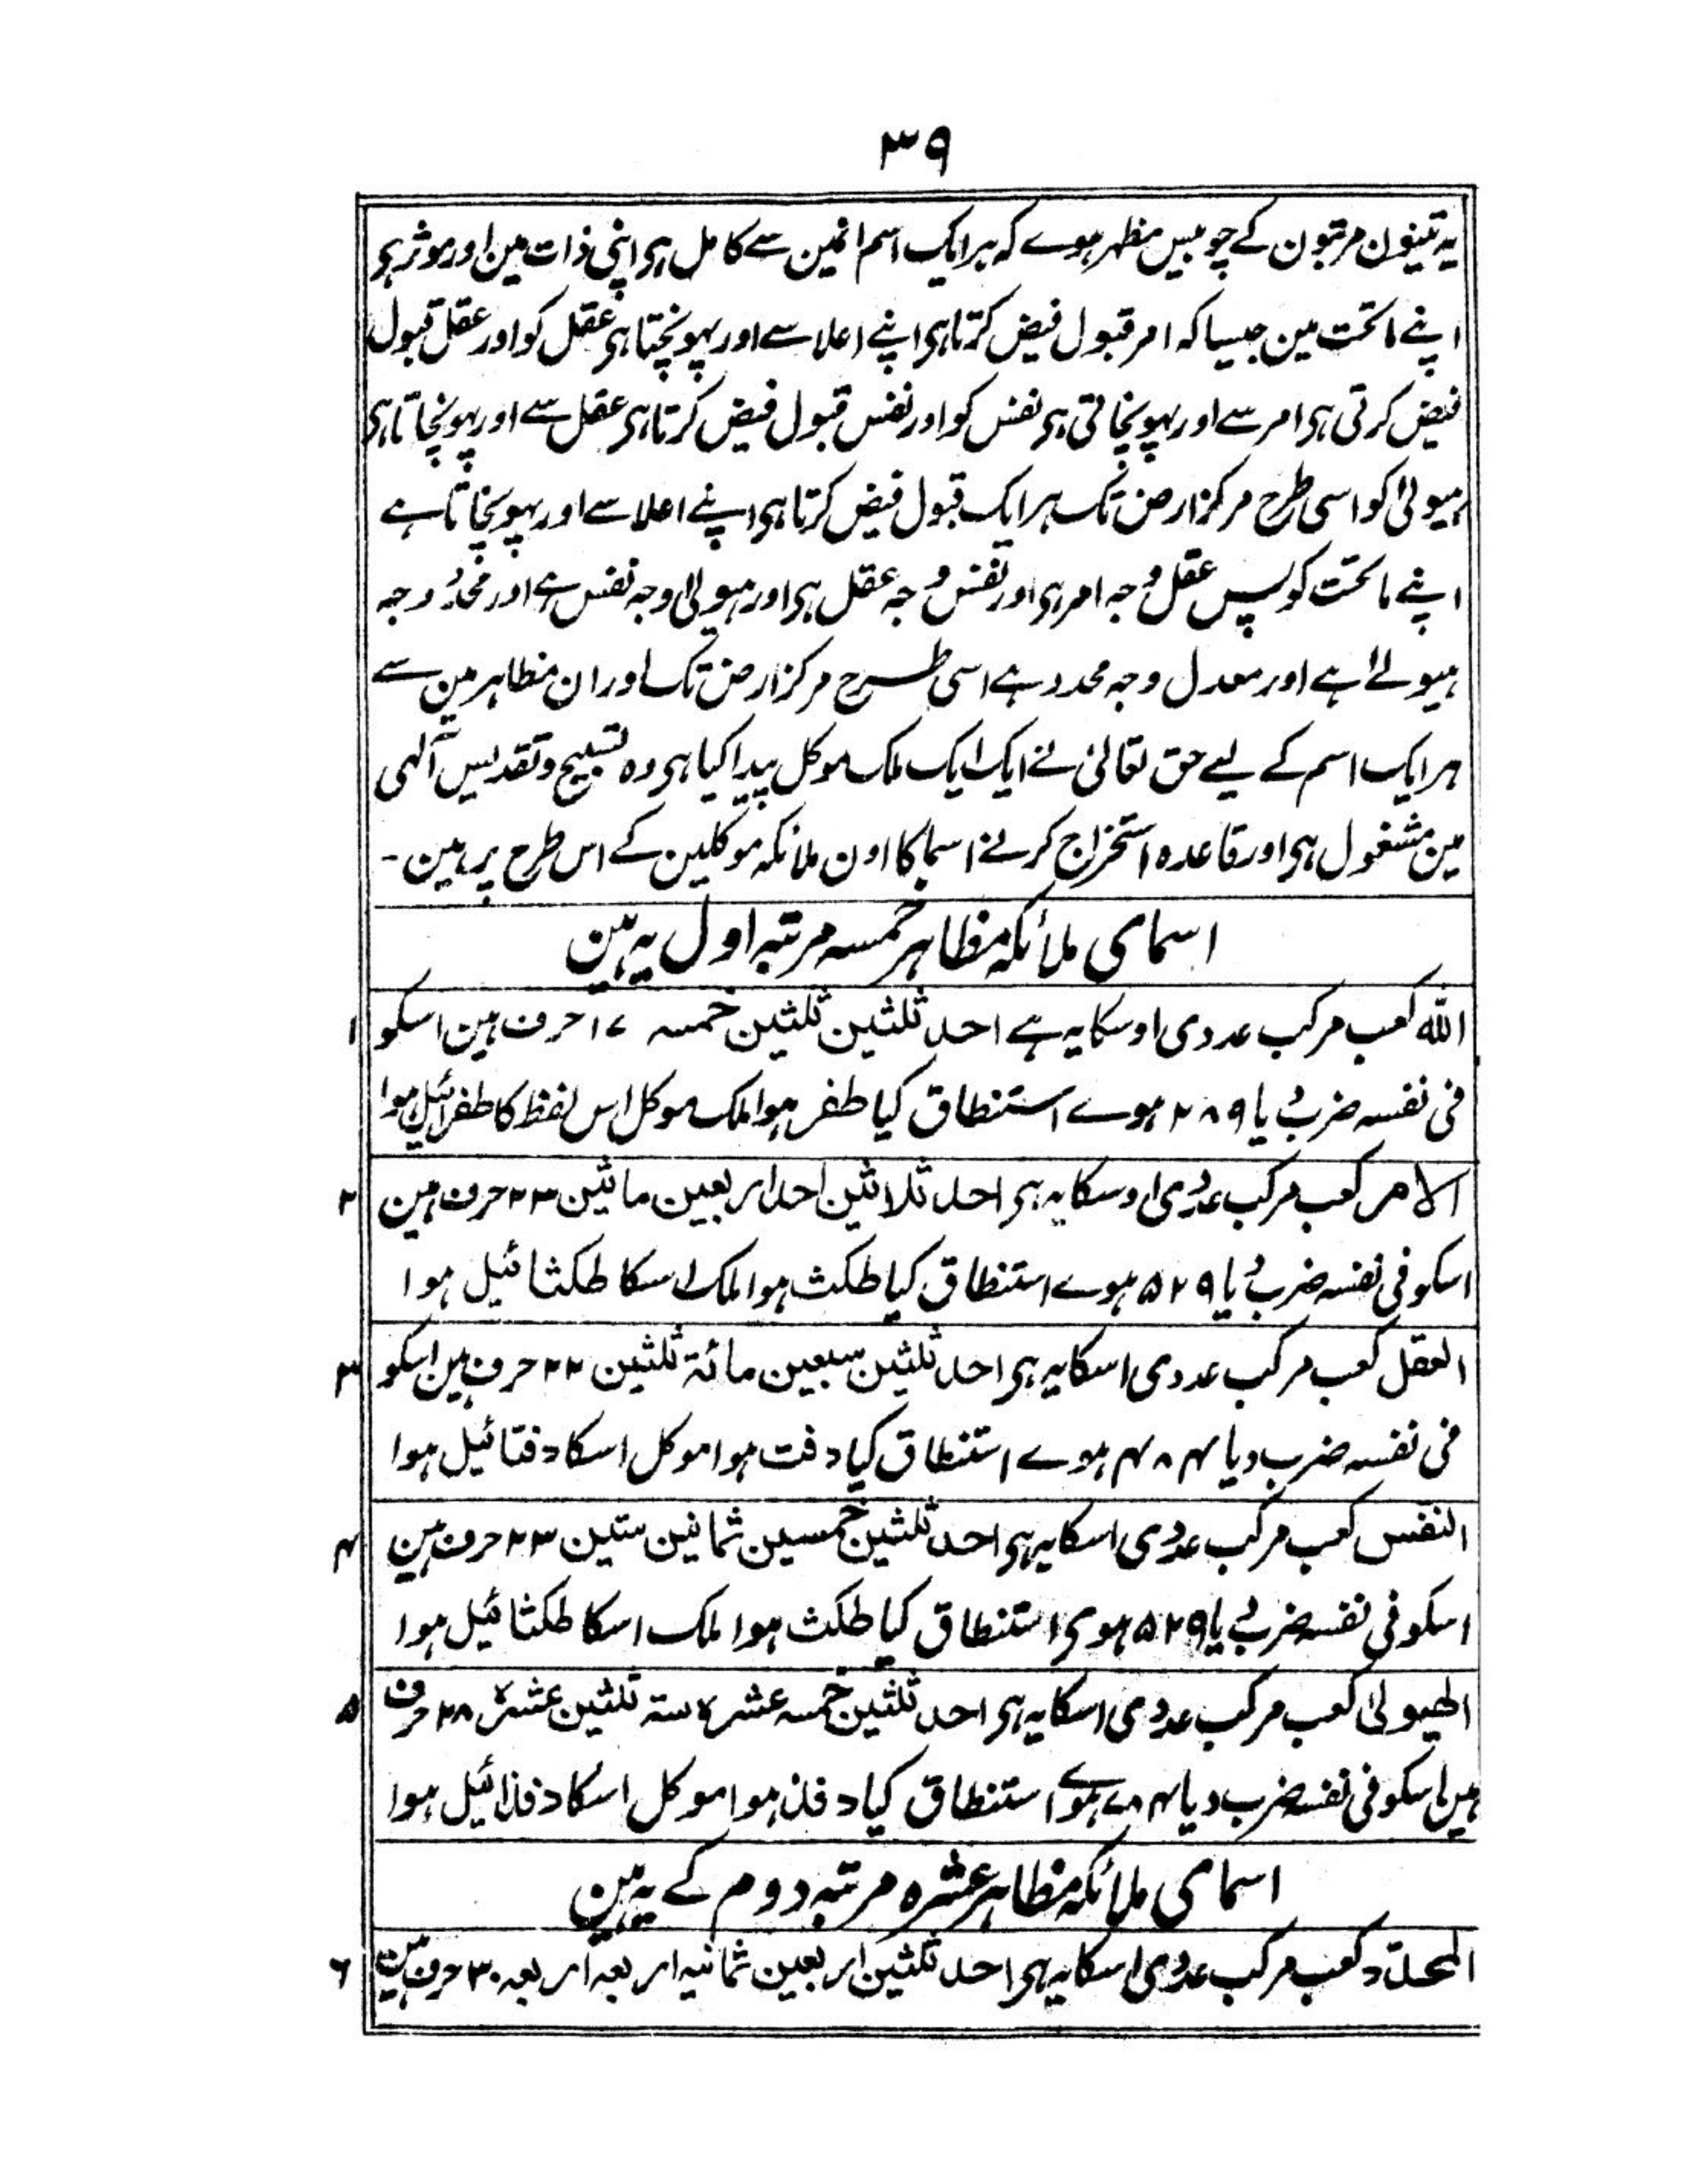 ۳۹
یہ تینون مرتبون کے چوبیس مظہر ہوے کہ ہر ایک اسم انمین سے کامل ہی اپنی ذات مین اور موثر ہی
اپنے ماتحت مین جیسا کہ امر قبول فیض کرتا ہی اپنے اعلا سے اور پہونچتا ہی عقل کو اور عقل قبول
فیض کرتی ہی امر سے اور پہونچاتی ہی نفس کو اور نفس قبول فیض کرتا ہی عقل سے اور پہونچاتا ہی
ہیولیٰ کو اسی طرح مرکز ارض تک ہر ایک قبول فیض کرتا ہی اپنے اعلا سے اور پہونچاتا ہے
اپنے ماتحت کو پس عقل وجہ امر ہی اور نفس وجہ عقل ہی اور ہیولیٰ وجہ نفس ہے اور محدد وجہ
ہیولے ہے اور معدل وجہ محدد ہے اسی طرح مرکز ارض تک اور ان مظاہر مین سے
ہر ایک اسم کے لیے حق تعالیٰ نے ایک ایک ملک موکل پیدا کیا ہی وہ تسبیح و تقدیس آلہی
مین مشغول ہی اور قاعدہ استخراج کرنے اسما کا اون ملائکہ موکلین کے اس طرح پر ہین ۔
اسمای ملائکہ مظاہر خمسہ مرتبہ اول یہ ہین
اللہ کعب مرکب عددی اوسکا یہ ہے احد ثلثین ثلثین خمسہ ۱۷ حرف ہین اسکو ۱
فی نفسہ ضرب دیا ۲۸۹ ہوے استنطاق کیا طفر ہوا ملک موکل اس لفظ کا طفرائیل ہوا
الامر کعب مرکب عددی اوسکا یہ ہی احد ثلاثین احد اربعین ماتین ۲۳ حرف ہین ۲
اسکو فی نفسہ ضرب دیا ۵۲۹ ہوے استنطاق کیا طکث ہوا ملک اسکا طکثائیل ہوا
العقل کعب مرکب عددی اسکا یہ ہی احد ثلثین سبعین مائة ثلثین ۲۲ حرف ہین اسکو ۳
فی نفسہ ضرب دیا ۴۸۴ ہوے استنطاق کیا دفت ہوا موکل اسکا دفتائیل ہوا
النفس کعب مرکب عددی اسکا یہ ہی احد ثلثین خمسین ثمانین ستین ۲۳ حرف ہین ۴
اسکو فی نفسہ ضرب دیا ۵۲۹ ہوی استنطاق کیا طکث ہوا ملک اسکا طکثائیل ہوا
الھیولیٰ کعب مرکب عددی اسکا یہ ہی احد ثلثین خمسہ عشرہ ستہ ثلثین عشرہ ۲۸ حرف ۵
ہین اسکو فی نفسہ ضرب دیا ۷۸۴ ہوے استنطاق کیا دفذ ہوا موکل اسکا دفذائیل ہوا
اسمای ملائکہ مظاہر عشرہ مرتبہ دوم کے یہ ہین
المحدّد کعب مرکب عددی اسکا یہ ہی احد ثلثین اربعین ثمانیہ اربعہ اربعہ ۳۰ حرف ہین ۶